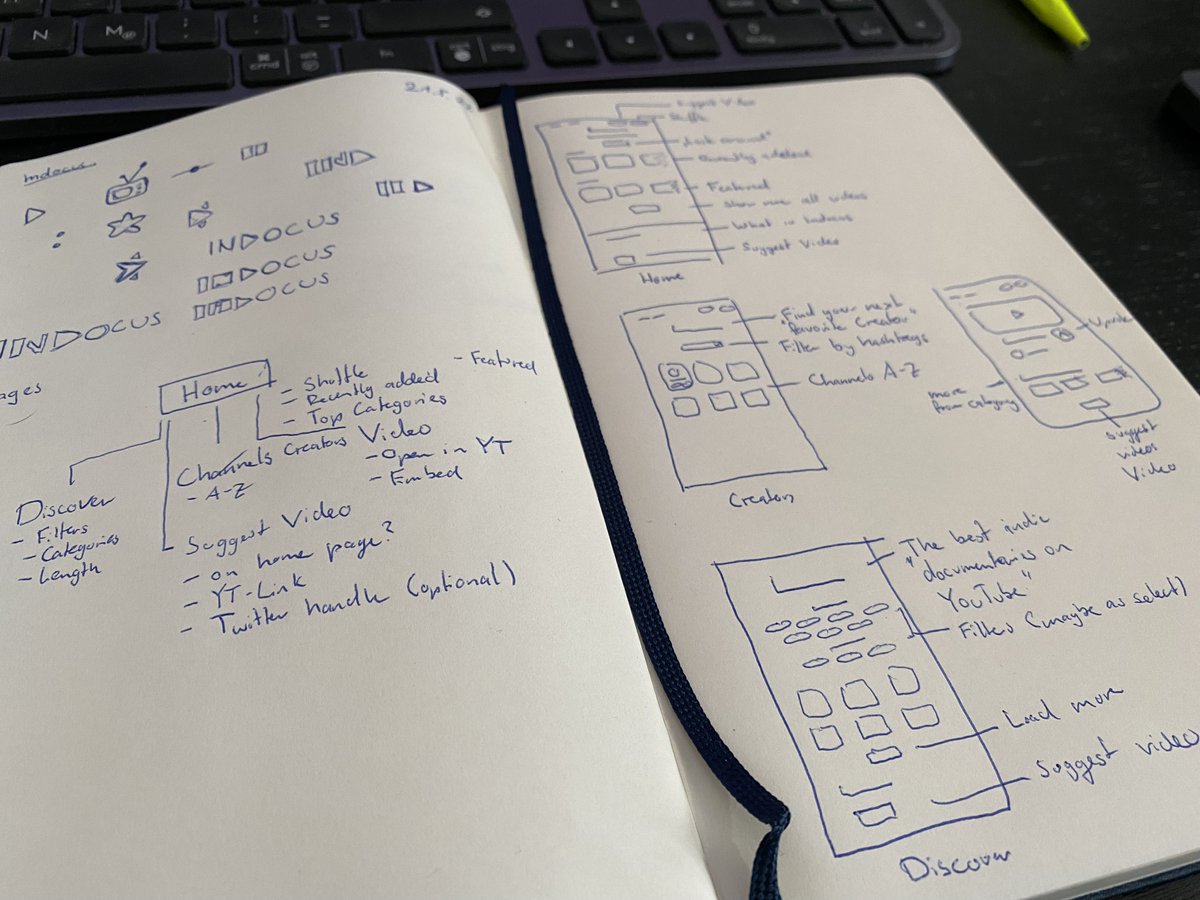 N
M
cmd
Indocus
INDOCUS
INDOCUS
INDOCUS
INDOCUS
ages
Home
- Shuffle
- Recently added
- Top Categories
- Featured
Discover
- Filters
- Categories
- Length
Channels Creators
- A-Z
Video
- Open in YT
- Embed
Suggest Video
- on home page?
- YT-Link
- Twitter handle (optional)
Suggest Video
Shuffle
Recently added
Featured
Show me all videos
What is Indocus
Suggest Video
Home
"Find your next
favorite Creator"
Filter by hashtags
Channels A-Z
Creators
more
from category
suggest
videos
Video
"The best indie
documentaries on
YouTube"
Filters (maybe as select)
Load more
Suggest video
Discover